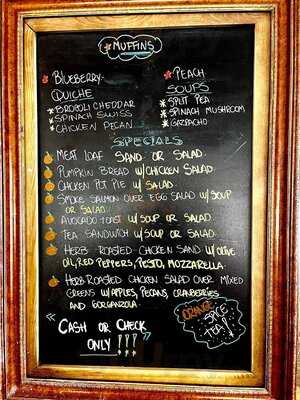 MUFFINS
BLUEBERRY
PEACH
QUICHE
SOUPS
BROCOLI CHEDDAR
SPLIT PEA
SPINACH SWISS
SPINACH MUSHROOM
CHICKEN PECAN
GAZPACHO
SPECIALS
MEAT LOAF SAND OR SALAD
PUMPKIN BREAD W/CHICKEN SALAD
CHICKEN POT PIE W/ SALAD
SMOKE SALMON OVER EGG SALAD W/ SOUP
OR SALAD
AVOCADO TOAST W/ SOUP OR SALAD
TEA SANDWICH W/ SOUP OR SALAD
HERB ROASTED CHICKEN SAND W/ OLIVE
OIL, RED PEPPERS, PESTO, MOZZARELLA
HERB ROASTED CHICKEN SALAD OVER MIXED
GREENS W/APPLES, PECANS, CRANBERRIES
AND GORGANZOLA
ORANGE
SPICE
TEA!
"CASH OR CHECK
ONLY!!!"